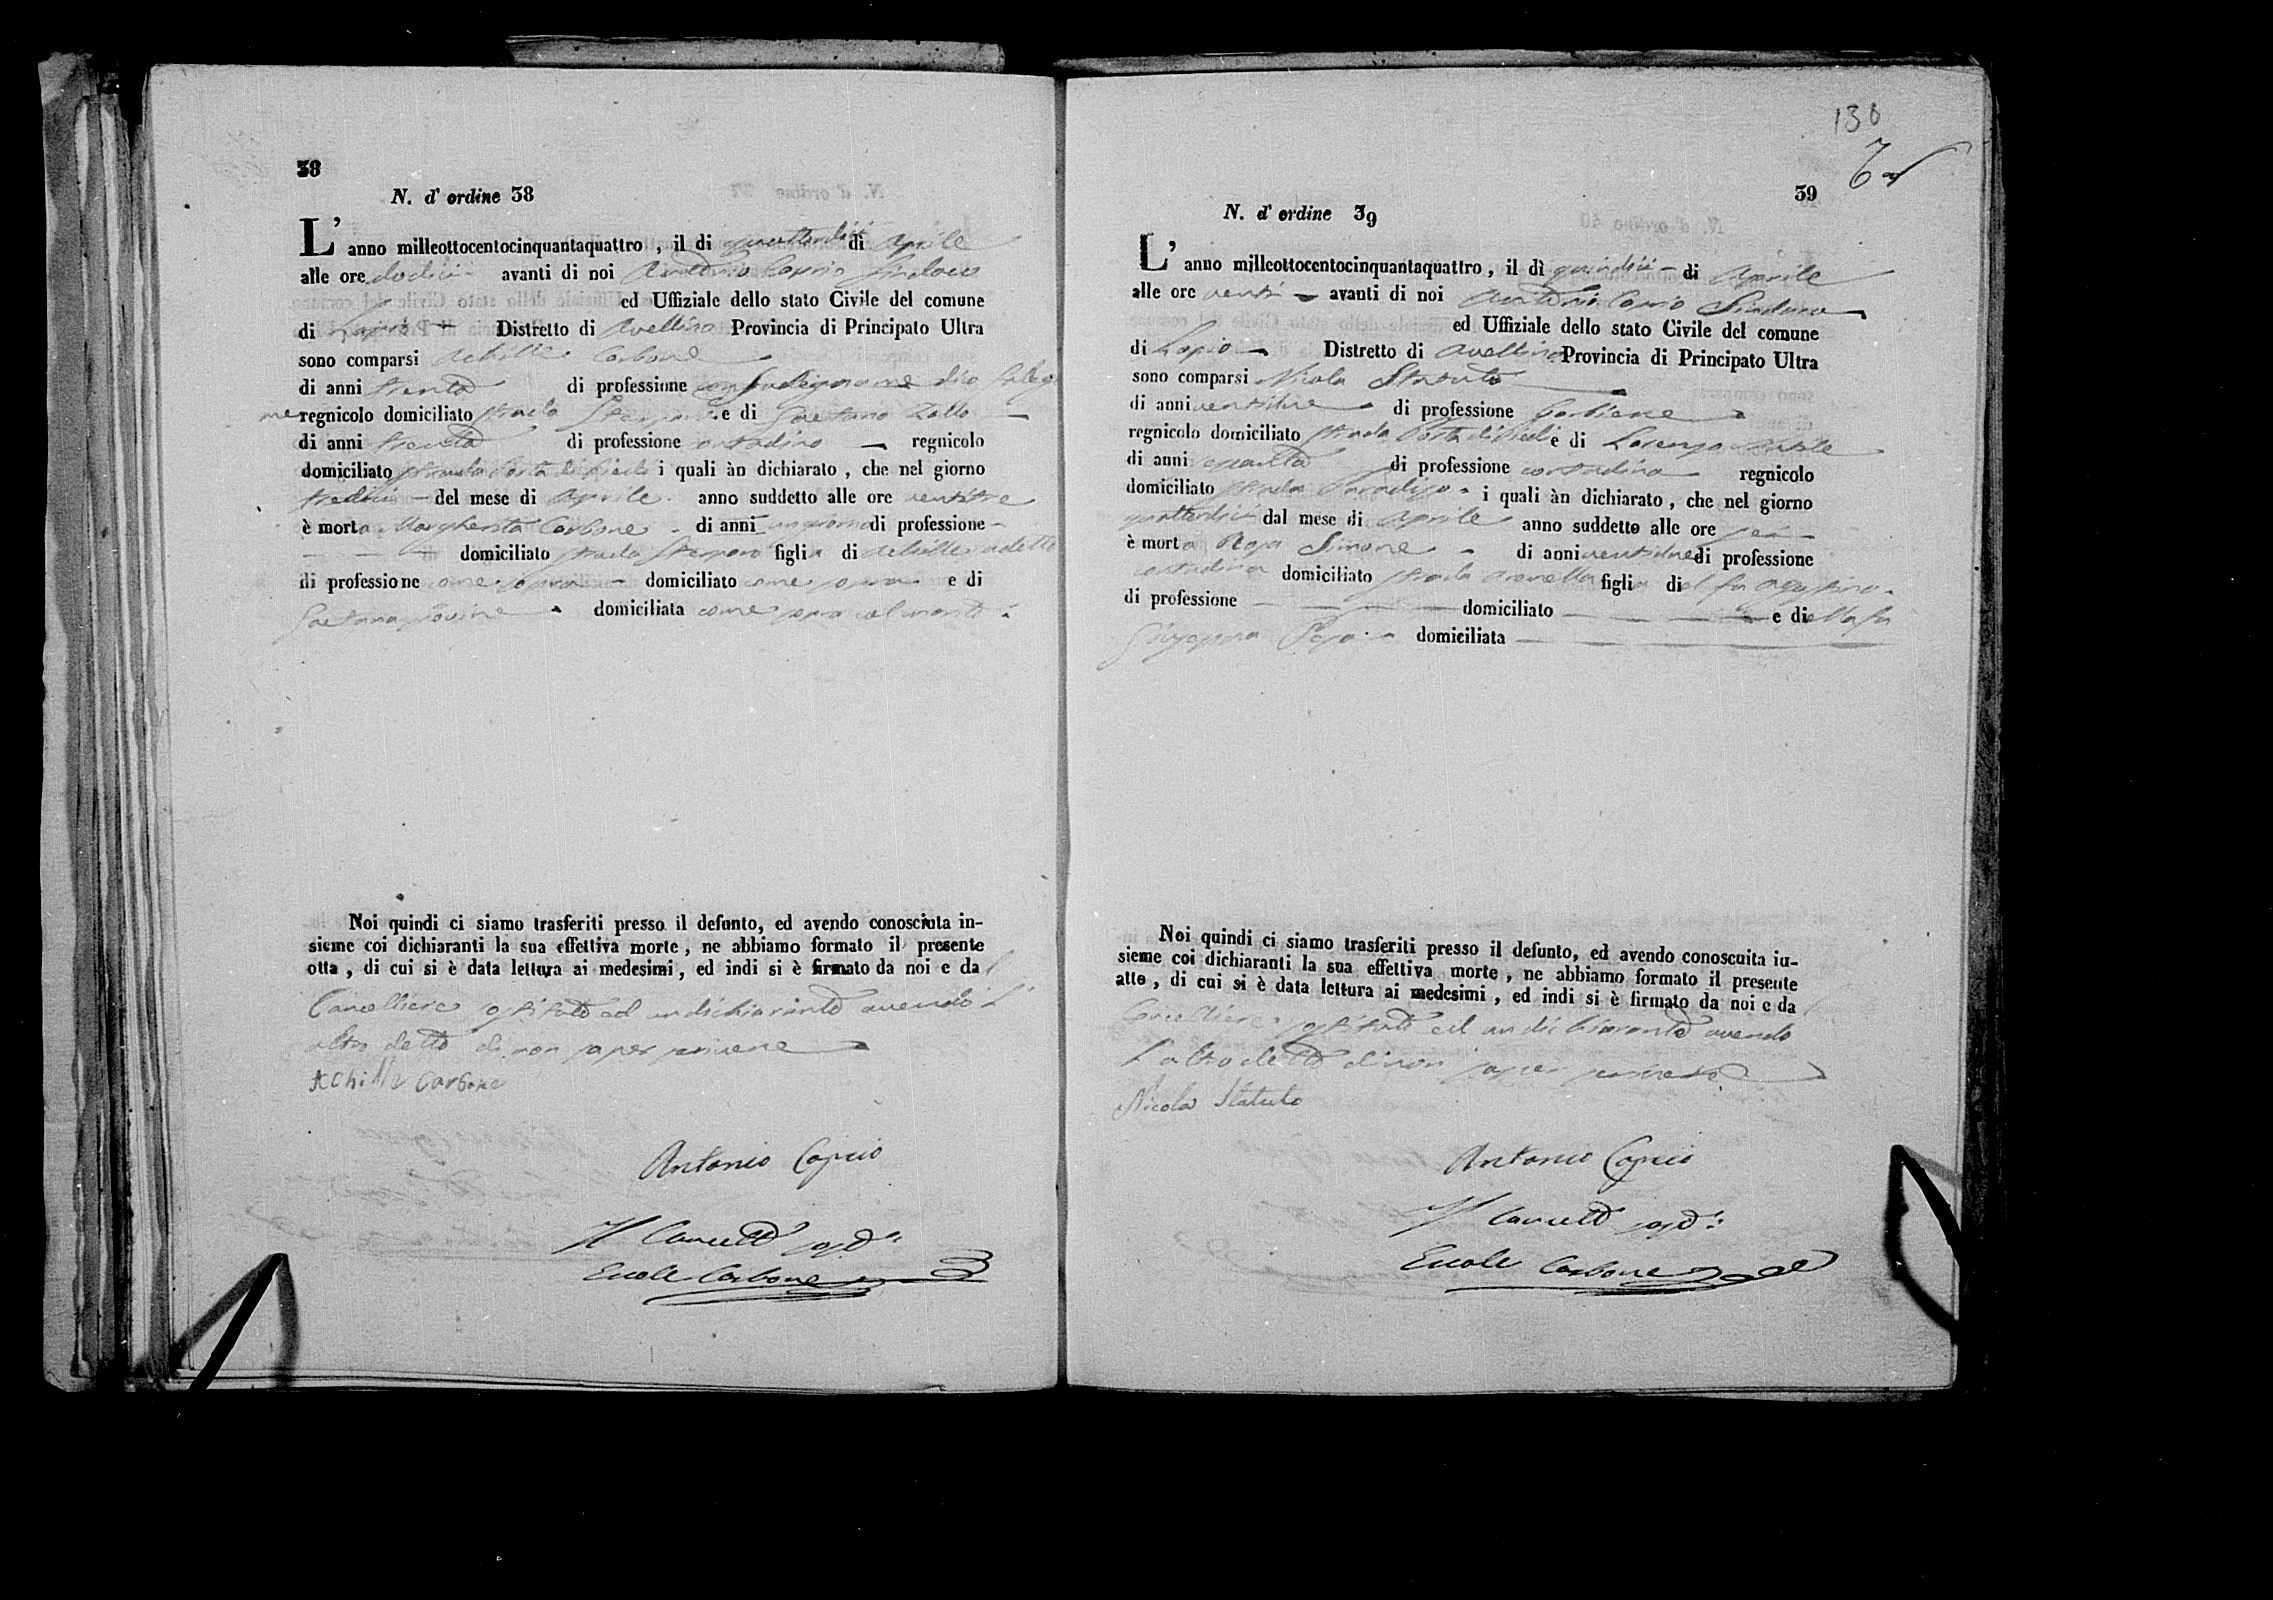 38
N. d' ordine 38
L' anno milleottocentocinquantaquattro , il di quattordici di Aprile
alle ore dodici avanti di noi Antonio Caprio Sindaco
ed Uffiziale dello stato Civile del comune
di Lapio Distretto di Avellino Provincia di Principato Ultra
sono comparsi Achille Carbone
di anni trenta di professione
regnicolo domiciliato strada e di Gaetano Zollo
di anni trenta di professione contadino regnicolo
domiciliato strada Porta di Piedi i quali àn dichiarato , che nel giorno
tredici del mese di Aprile anno suddetto alle ore ventitre
è morta Margherita Carbone di anni un giorno di professione
domiciliato strada figlia di Achille
di professione come sopra domiciliato come sopra e di
Gaetana Iovine domiciliata come sopra
Noi quindi ci siamo trasferiti presso il defunto, ed avendo conosciuta in-
sieme coi dichiaranti la sua effettiva morte , ne abbiamo formato il presente
otta , di cui si è data lettura ai medesimi , ed indi si è firmato da noi e da
Cancelliere sostituto ed un dichiarante avendo l'
altro detto di non saper scrivere
Achille Carbone
Antonio Caprio
Il Cancell. sost.
Ercole Carbone
130
39
N. d' ordine 39
L' anno milleottocentocinquantaquattro , il dì quindici di Aprile
alle ore venti avanti di noi Antonio Caprio Sindaco
ed Uffiziale dello stato Civile del comune
di Lapio Distretto di Avellino Provincia di Principato Ultra
sono comparsi Nicola Statuto
di anni ventidue di professione
regnicolo domiciliato strada Porta di Piedi e di Lorenzo
di anni di professione contadino regnicolo
domiciliato strada Paradiso i quali àn dichiarato , che nel giorno
quattordici dal mese di Aprile anno suddetto alle ore sei
è morta Rosa Simone di anni ventidue di professione
contadina domiciliato strada figlia del fu Agostino
di professione domiciliato e della fu
Giuseppa Pepa domiciliata
Noi quindi ci siamo trasferiti presso il defunto, ed avendo conoscuita iu-
sieme coi dichiaranti la sua effettiva morte , ne abbiamo formato il presente
atto , di cui si è data lettura ai medesimi , ed indi si è firmato da noi e da
Cancelliere sostituto ed un dichiarante avendo
l'altro detto di non saper scrivere
Nicola Statuto
Antonio Caprio
Il Cancell. sost.
Ercole Carbone